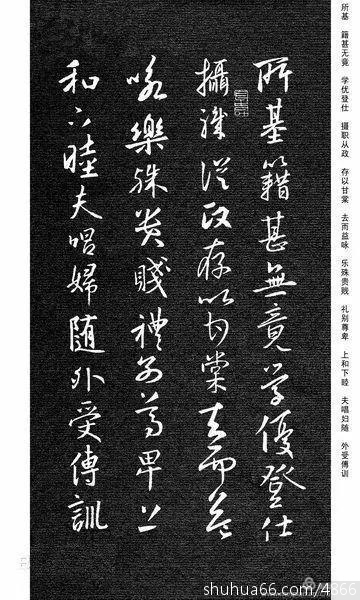 所基 籍甚无竟 学优登仕 摄职从政 存以甘棠 去而益咏 乐殊贵贱 礼别尊卑 上和下睦 夫唱妇随 外受傅训
所基籍甚無竟学優登仕
攝職從政存以甘棠去而益
咏樂殊貴賤禮別尊卑上
和下睦夫唱婦随外受傅訓
shuhua66.com/4866